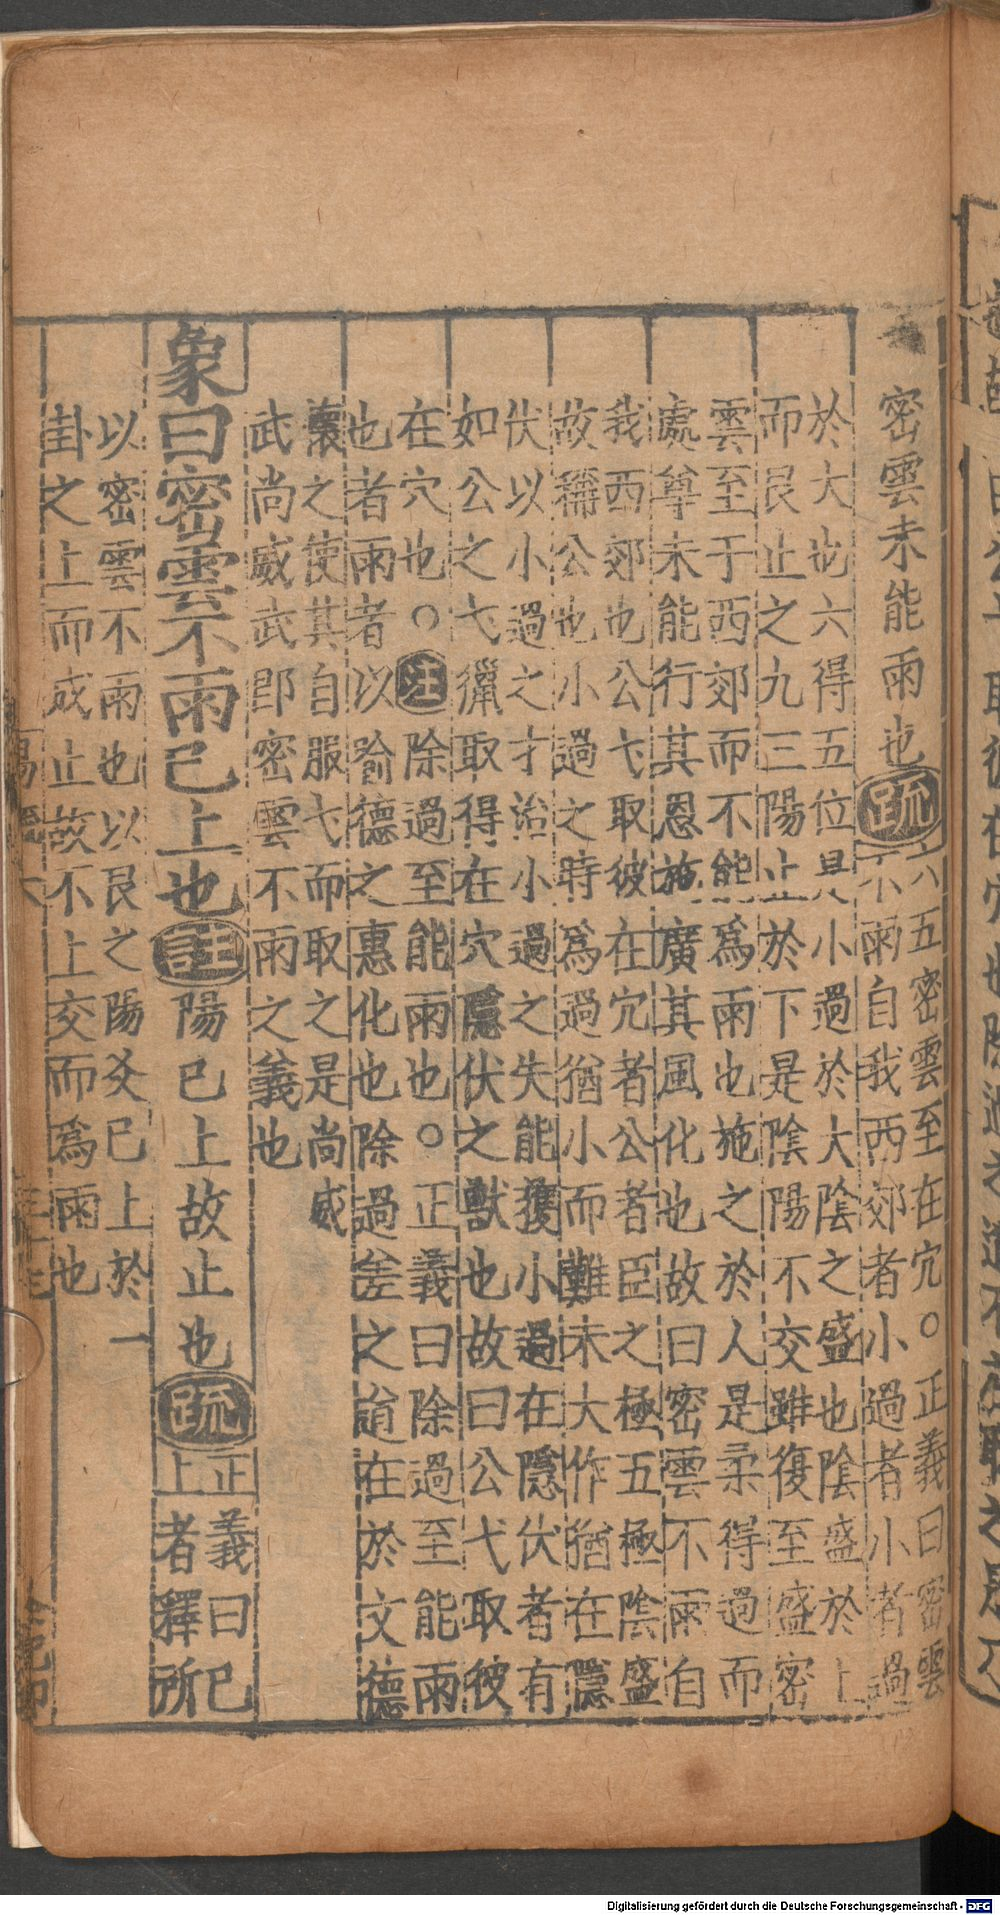 密雲未能雨也疏六五密雲至在穴○正義曰密雲
不雨自我西郊者小過者小者過
於大也六得五位是小過於大陰之盛也陰盛於上
而艮止之九三陽止於下是陰陽不交雖復至盛密
雲至于西郊而不能爲雨也施之於人是柔得過而
處尊未能行其恩施廣其風化也故曰密雲不雨自
我西郊也公弋取彼在穴者公者臣之極五極陰盛
故稱公也小過之時爲過猶小而難未大作猶在隱
伏以小過之才治小過之失能獲小過在隱伏者有
如公之弋獵取得在穴隱伏之獸也故曰公弋取彼
在穴也○注除過至能雨也○正義曰除過至能雨
也者雨者以喻德之惠化也除過差之道在於文德
懷之使其自服弋而取之是尚威
武尚威武即密雲不雨之義也
象曰密雲不雨已上也註陽已上故止也疏正義曰已
上者釋所
以密雲不雨也以艮之陽爻已上於一
卦之上而成止故不上交而爲雨也
Digitalisierung gefördert durch die Deutsche Forschungsgemeinschaft - DFG